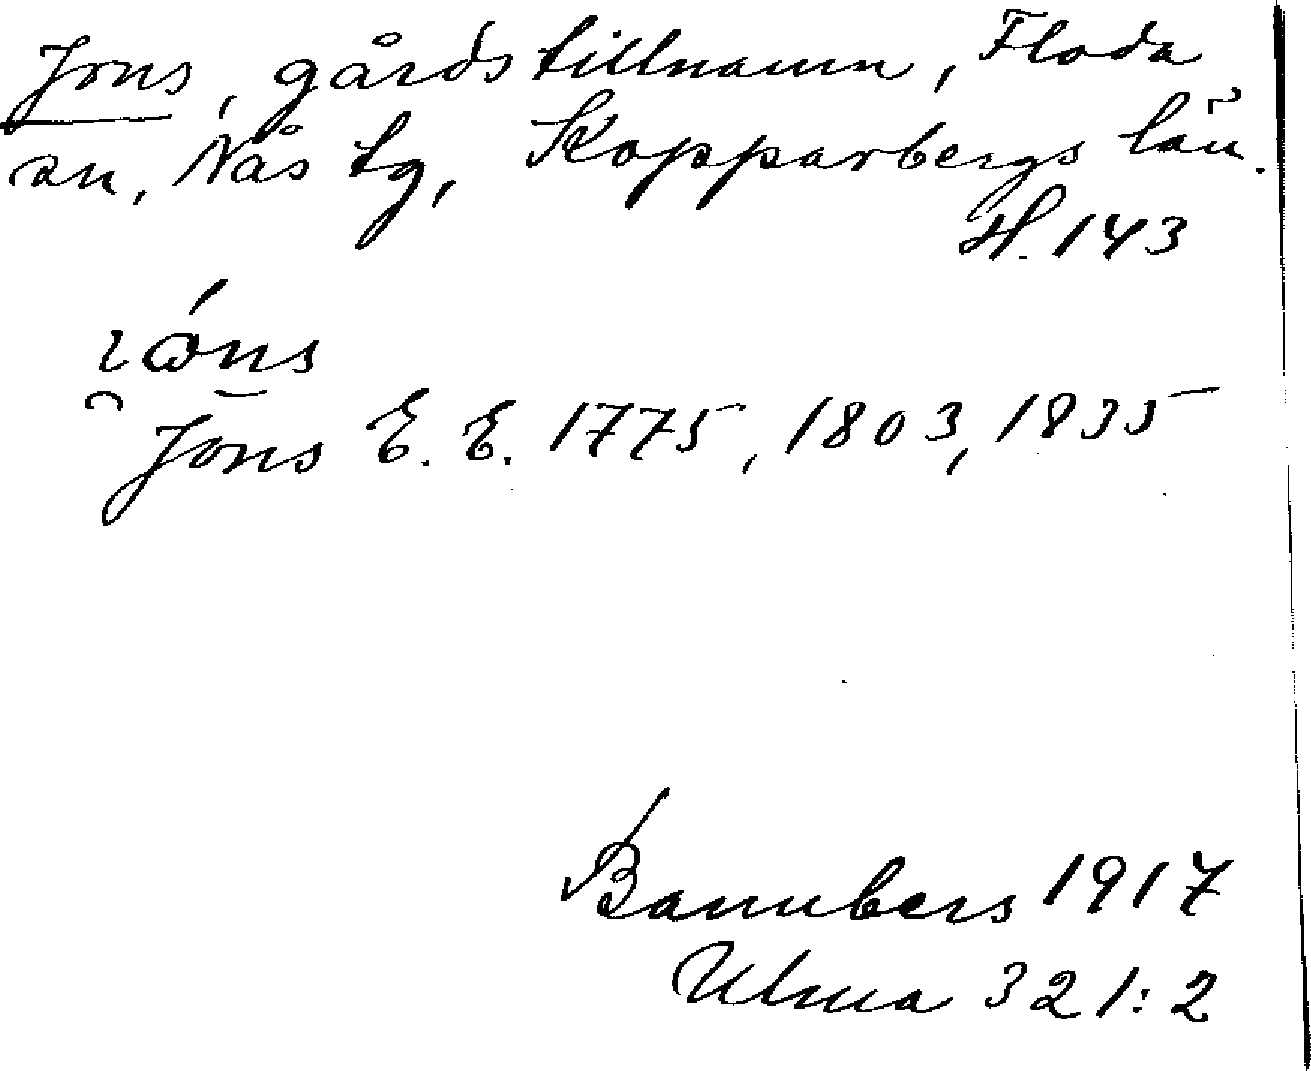 Jons, gårdstillnamn, Floda
sn, Nås tg, Kopparbergs län.
H. 143
Jons E. E. 1775, 1803, 1835
Bannbers 1917
Ulma 321:2